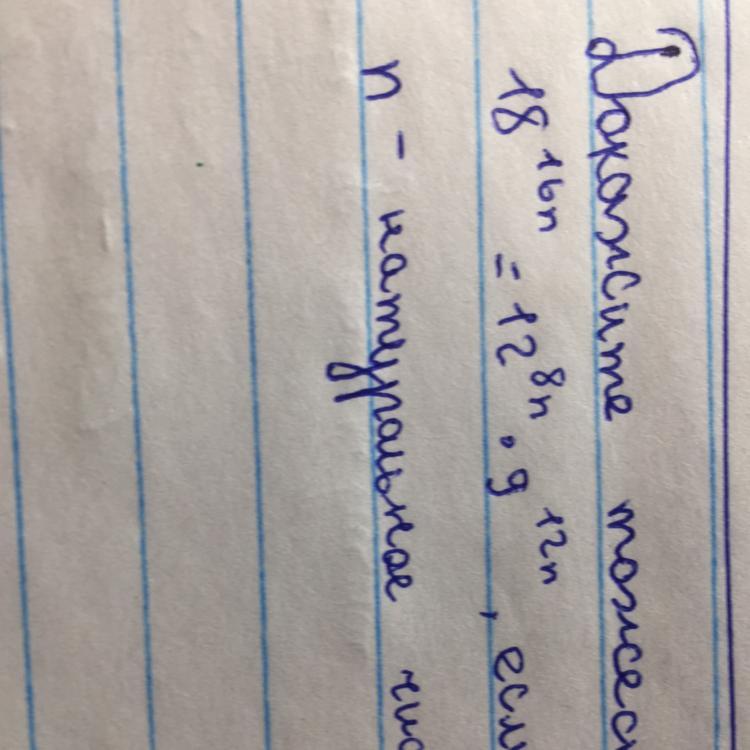 Докажите тожес
18^16n = 12^8n · 9^12n , есл
n - натуральное чис